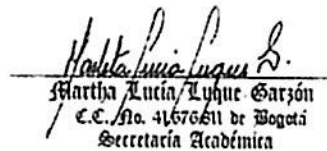 Martha Lucia Luque G.
Martha Lucía Luque Garzón
C.C. No. 41.676.511 de Bogotá
Secretaría Académica